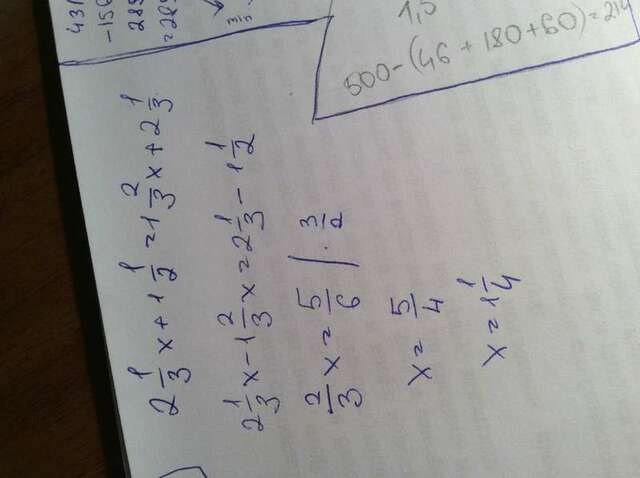 2 1/3 x + 1 1/2 = 1 2/3 x + 2 1/3
2 1/3 x - 1 2/3 x = 2 1/3 - 1 1/2
2/3 x = 5/6 | · 3/2
x = 5/4
x = 1 1/4
431
1,5
500-(46+180+60)=214